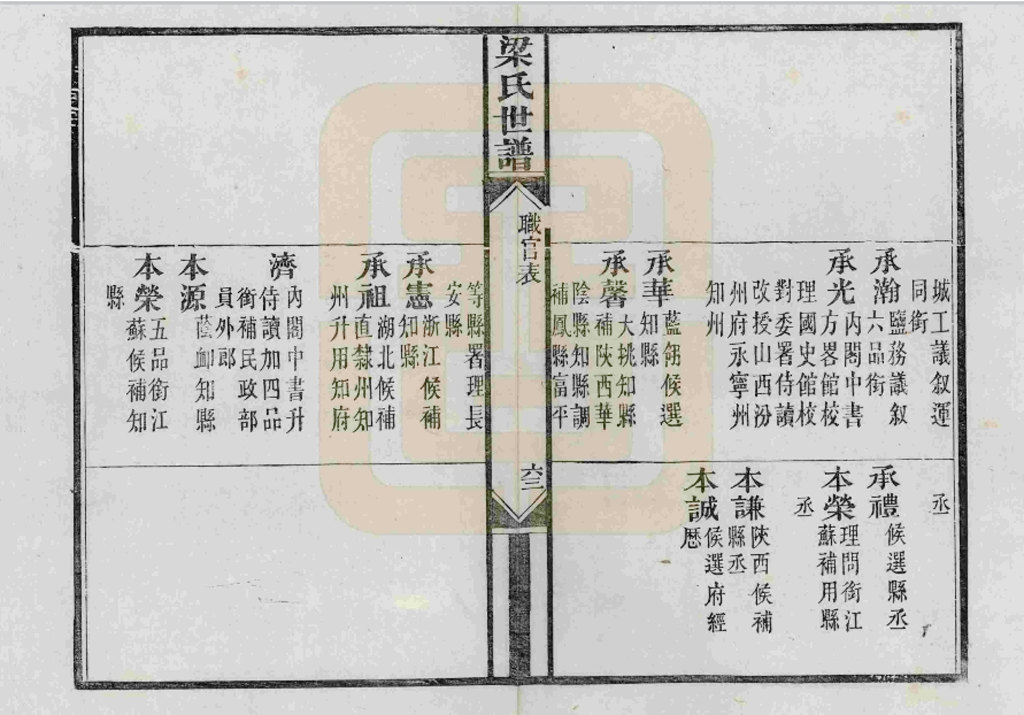 城工議叙運
同銜
承瀚鹽務議叙
六品銜
承光内閣中書
方畧館校
理國史館校
對委署侍讀
改授山西汾
州府永寧州
知州
承華藍翎候選
知縣
承馨大挑知縣
補陝西華
陰縣知縣調
補鳳縣富平
丞
承禮候選縣丞
本榮理問銜江
蘇補用縣
丞
本謙陝西候補
縣丞
本誠候選府經
歷
梁氏世譜
職官表
六三
等縣署理長
安縣
承憲浙江候補
知縣
承祖湖北候補
直隸州知
州升用知府
濟内閣中書升
侍讀加四品
銜補民政部
員外郎
本源蔭卹知縣
本榮五品銜江
蘇候補知
縣